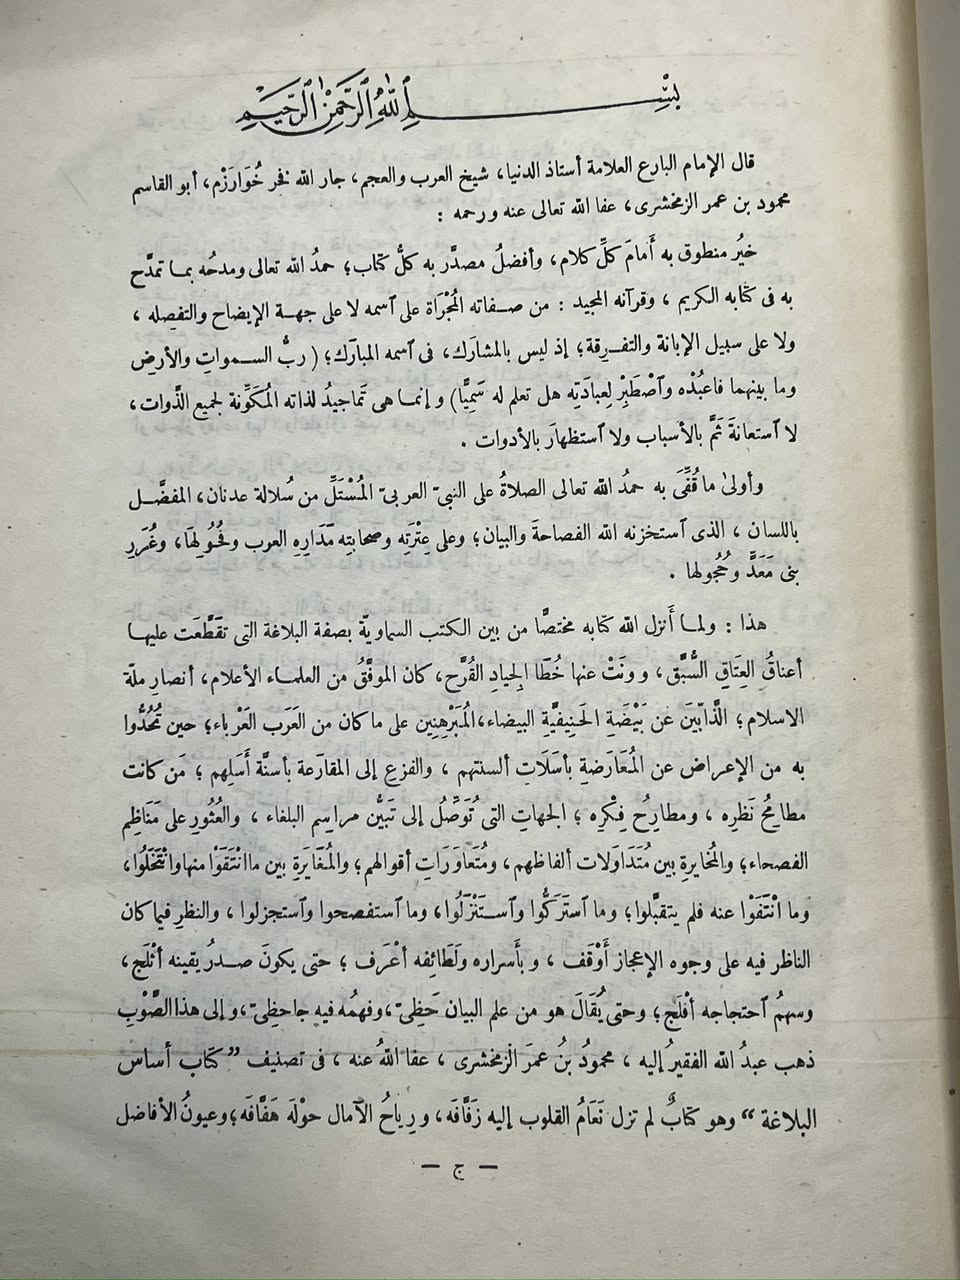 بِسْمِ ٱللهِ ٱلرَّحْمٰنِ ٱلرَّحِيمِ
قال الإمام البارع العلامة أستاذ الدنيا، شيخ العرب والعجم، جار الله فخر خُوَارَزْم، أبو القاسم
محمود بن عمر الزمخشرى، عفا الله تعالى عنه ورحمه :
خيُر منطوق به أَمامَ كلِّ كلام، وأفضلُ مصدَّر به كلُّ كتاب؛ حمدُ الله تعالى ومدحُه بما تمدَّح
به فى كتابه الكريم ، وقرآنه المجيد : من صفاته المُجْرَاة على ٱسمه لا على جهة الإيضاح والتفصِله ،
ولا على سبيل الإبانة والتفرِقة؛ إذ ليس بالمشارَك، فى ٱسمه المبارَك؛ ( ربُّ السمواتِ والأرضِ
وما بينهما فاعبُدْه وٱصْطَبِرْ لِعبادَتِه هل تعلم له سَمِيًّا) وإنما هى تَماجيدُ لذاته المُكَوِّنة لجميع الذَّوات،
لا ٱستعانةَ ثَمَّ بالأسباب ولا ٱستظهارَ بالأدوات .
وأولىٰ ما قُفِّىَ به حمدُ الله تعالى الصلاةُ على النبىّ العربىّ المُسْتَلِّ من سُلالة عدنان، المفضَّل
باللسان ، الذى ٱستخزنه الله الفصاحةَ والبيان؛ وعلى عِتْرَتِه وصحابتِه مَدَارِهِ العرب وفُحُولِهَا، وغُرَرِ
بنى مَعَدٍّ وحُجُولها .
هذا : ولما أَنزل الله كتابه مختصًّا من بين الكتب السماويّة بصفة البلاغة التى تقَطَّعَت عليها
أعناقُ العِتَاقِ السُّبَّق، وونَتْ عنها خُطَا الِجيادِ القُرَّح، كان الموفَّقُ من العلماء الأعلام، أنصارِ ملّة
الاسلام؛ الذَّابّينَ عن بَيْضَةِ الحَنِيفيَّةِ البيضاء،المُبَرْهِنِين على ما كان من العَرَب العَرْباء؛ حين تُحُدُّوا
به من الإعراض عن المُعَارَضةِ بأَسَلَاتِ ألسنتهم ، والفزعِ إلى المقارَعة بأسنَّة أَسَلِهم ؛ مَن كانت
مطامِحُ نَظرِه ، ومطارِحُ فِكْرِه ؛ الجهاتِ التى تُوَصِّلُ إلى تَبيُّن مراسِم البلغاء ، والعُثُورِ على مَنَاظِم
الفصحاء؛ والمُخايرةِ بين مُتَدَاوَلات ألفاظهم، ومُتَعاوَرَاتِ أقوالهم؛ والمُغَايَرَةِ بين ما ٱنْتَقَوْا منها وٱنْتَخَلُوا،
وما ٱنْتَفَوْا عنه فلم يتقبَّلوا؛ وما ٱستَرَكُّوا وٱستَنْزَلُوا، وما ٱستفصحوا وٱستجزلوا ، والنظرِ فيما كان
الناظر فيه على وجوه الإعجاز أَوْقَف ، وبأَسراره ولَطَائِفه أعْرَف ؛ حتى يكونَ صدرُ يقينه أثْلَج ،
وسهمُ ٱحتجاجه أفْلَج؛ وحتى يُقَالَ هو من علم البيان حَظِىّ،وفهمُه فيه جاحظِىّ،وإلى هذا الصَّوْبِ
ذهب عبدُ الله الفقيرُ إليه ، محمودُ بنُ عمرَ الزمخشرى ، عفا اللهُ عنه ، فى تصنيف ”كتاب أساس
البلاغة“ وهو كتابٌ لم تزل نَعَامُ القلوب إليه زَفَّافَه، ورِياحُ الآمال حوْلَه هَفَّافَه؛وعيونُ الأفاضل
— ج —